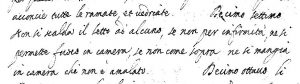 tutte le ramate et vedriate. Decimo settimo
Non si scaldi il letto ad alcuno, se non per infirmità, ne si
permetta fuoco in camera, se non come sopra ne si mangia
in camera chi non è amalato. Decimo ottavo si